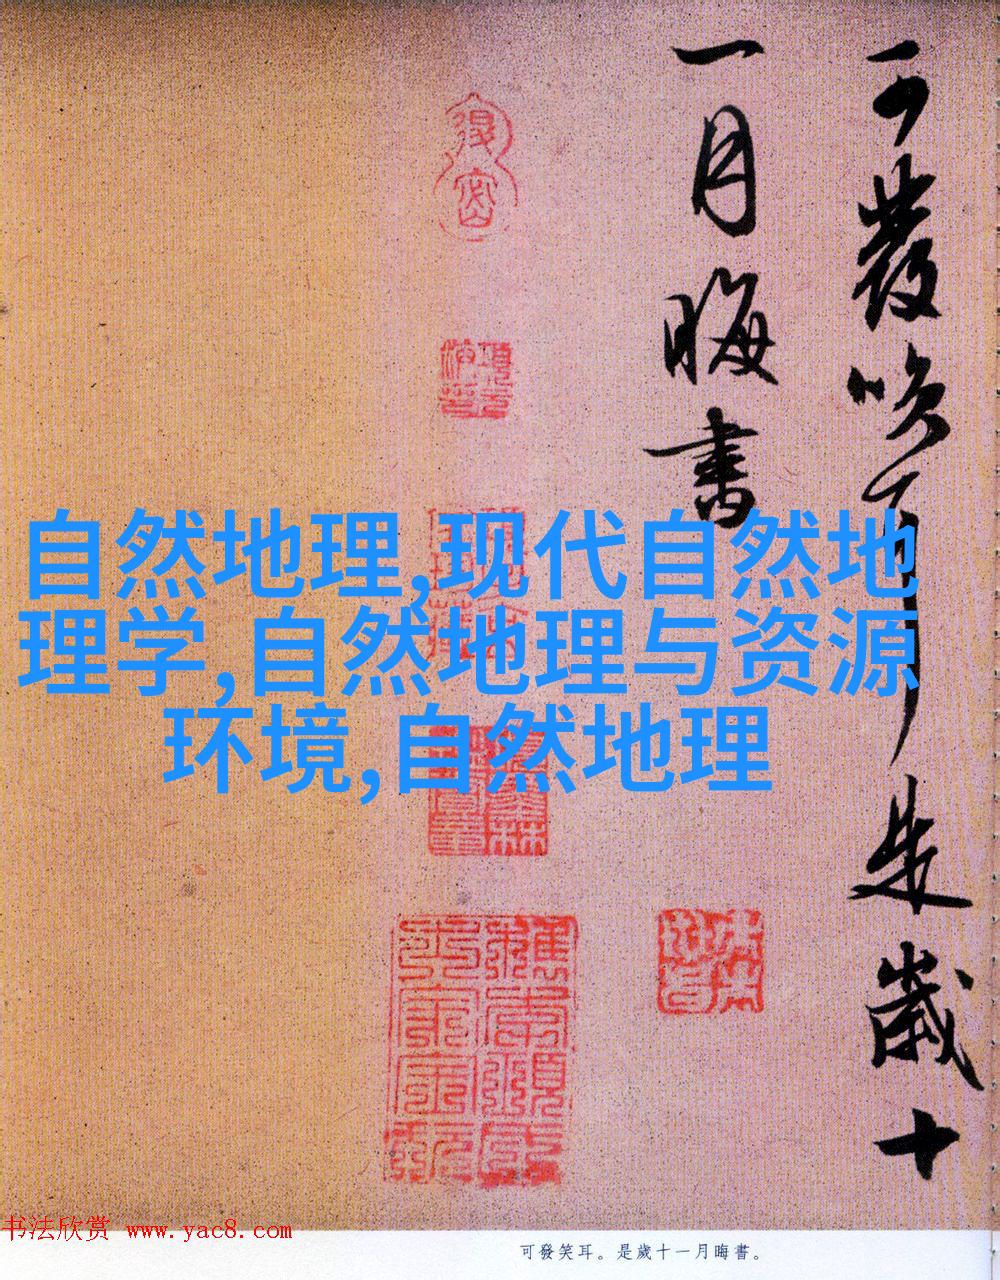 可發笑耳是歲十
一月晦書
自然地理,现代自然地
理学,自然地理与资源
环境,自然地理
书法欣赏 www.yac8.com
可發笑耳。是歲十一月晦書。